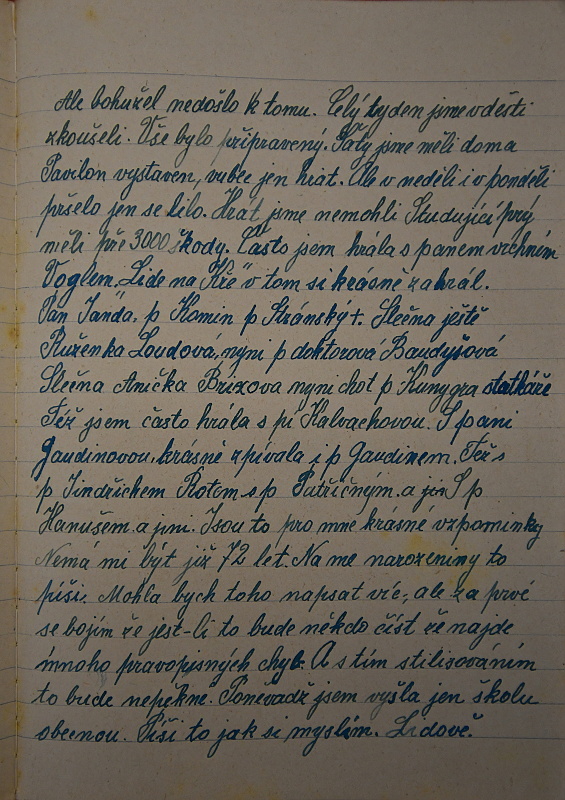 Ale bohužel nedošlo k tomu. Celý tyden jsme v děšti
zkoušeli. Vše bylo připravený. Šaty jsme měli doma
Pavilon vystaven, vubec jen hrát. Ale v neděli i v ponděli
pršelo jen se lilo. Hrát jsme nemohli Studující prý
měli přes 3000 škody. Často jsem hrála s panem vrchním
Voglem. Lide na Kře" v tom si krásně zahrál.
Pan Janda, p Komin p Stránský +. Slečna ještě
Ruženka Loudová, nyni p doktorová Baudyšová
Slečna Anička Břizova nyni chot p Kunygra statkáře
Též jsem často hrála s pí Kalvachovou. S paní
Gaudinovou, krásně zpívala i p Gaudinem. Též s
p Jindřichem Rotem s p Patřičným a S p
Hanušem a jini. Jsou to pro mne krásné vzpominky
Nemá mi být již 72 let. Na me narozeniny to
píši. Mohla bych toho napsat víc, ale za prvé
se bojím že jest-li to bude někdo číst že najde
mnoho pravopisných chyb. A s tím stilisováním
to bude nepěkné. Poněvadž jsem vyšla jen školu
obecnou. Píši to jak si myslím. Lidově.